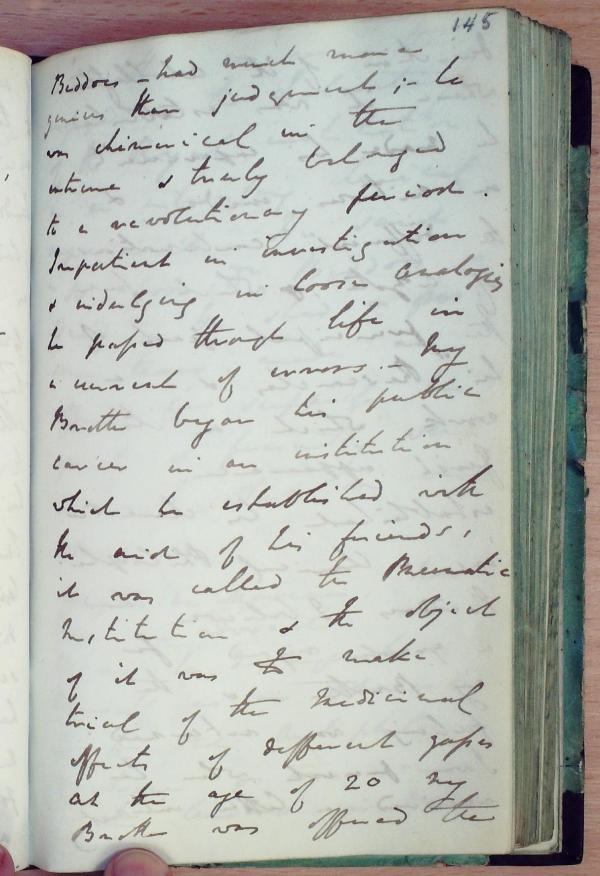 145
Beddoes - had much more
genius than judgment; - he
was chimerical in the
extreme & truly belonged
to a revolutionary period.
Impatient in investigation
& indulging in loose analogies
he passed through life in
a current of errors. - My
Brother began his public
career in an institution
which he established with
the aid of his friends,
it was called the Pneumatic
Institution & the object
of it was to make
trial of the Medicinal
effects of different gases
at the age of 20 My
Brother was offered the